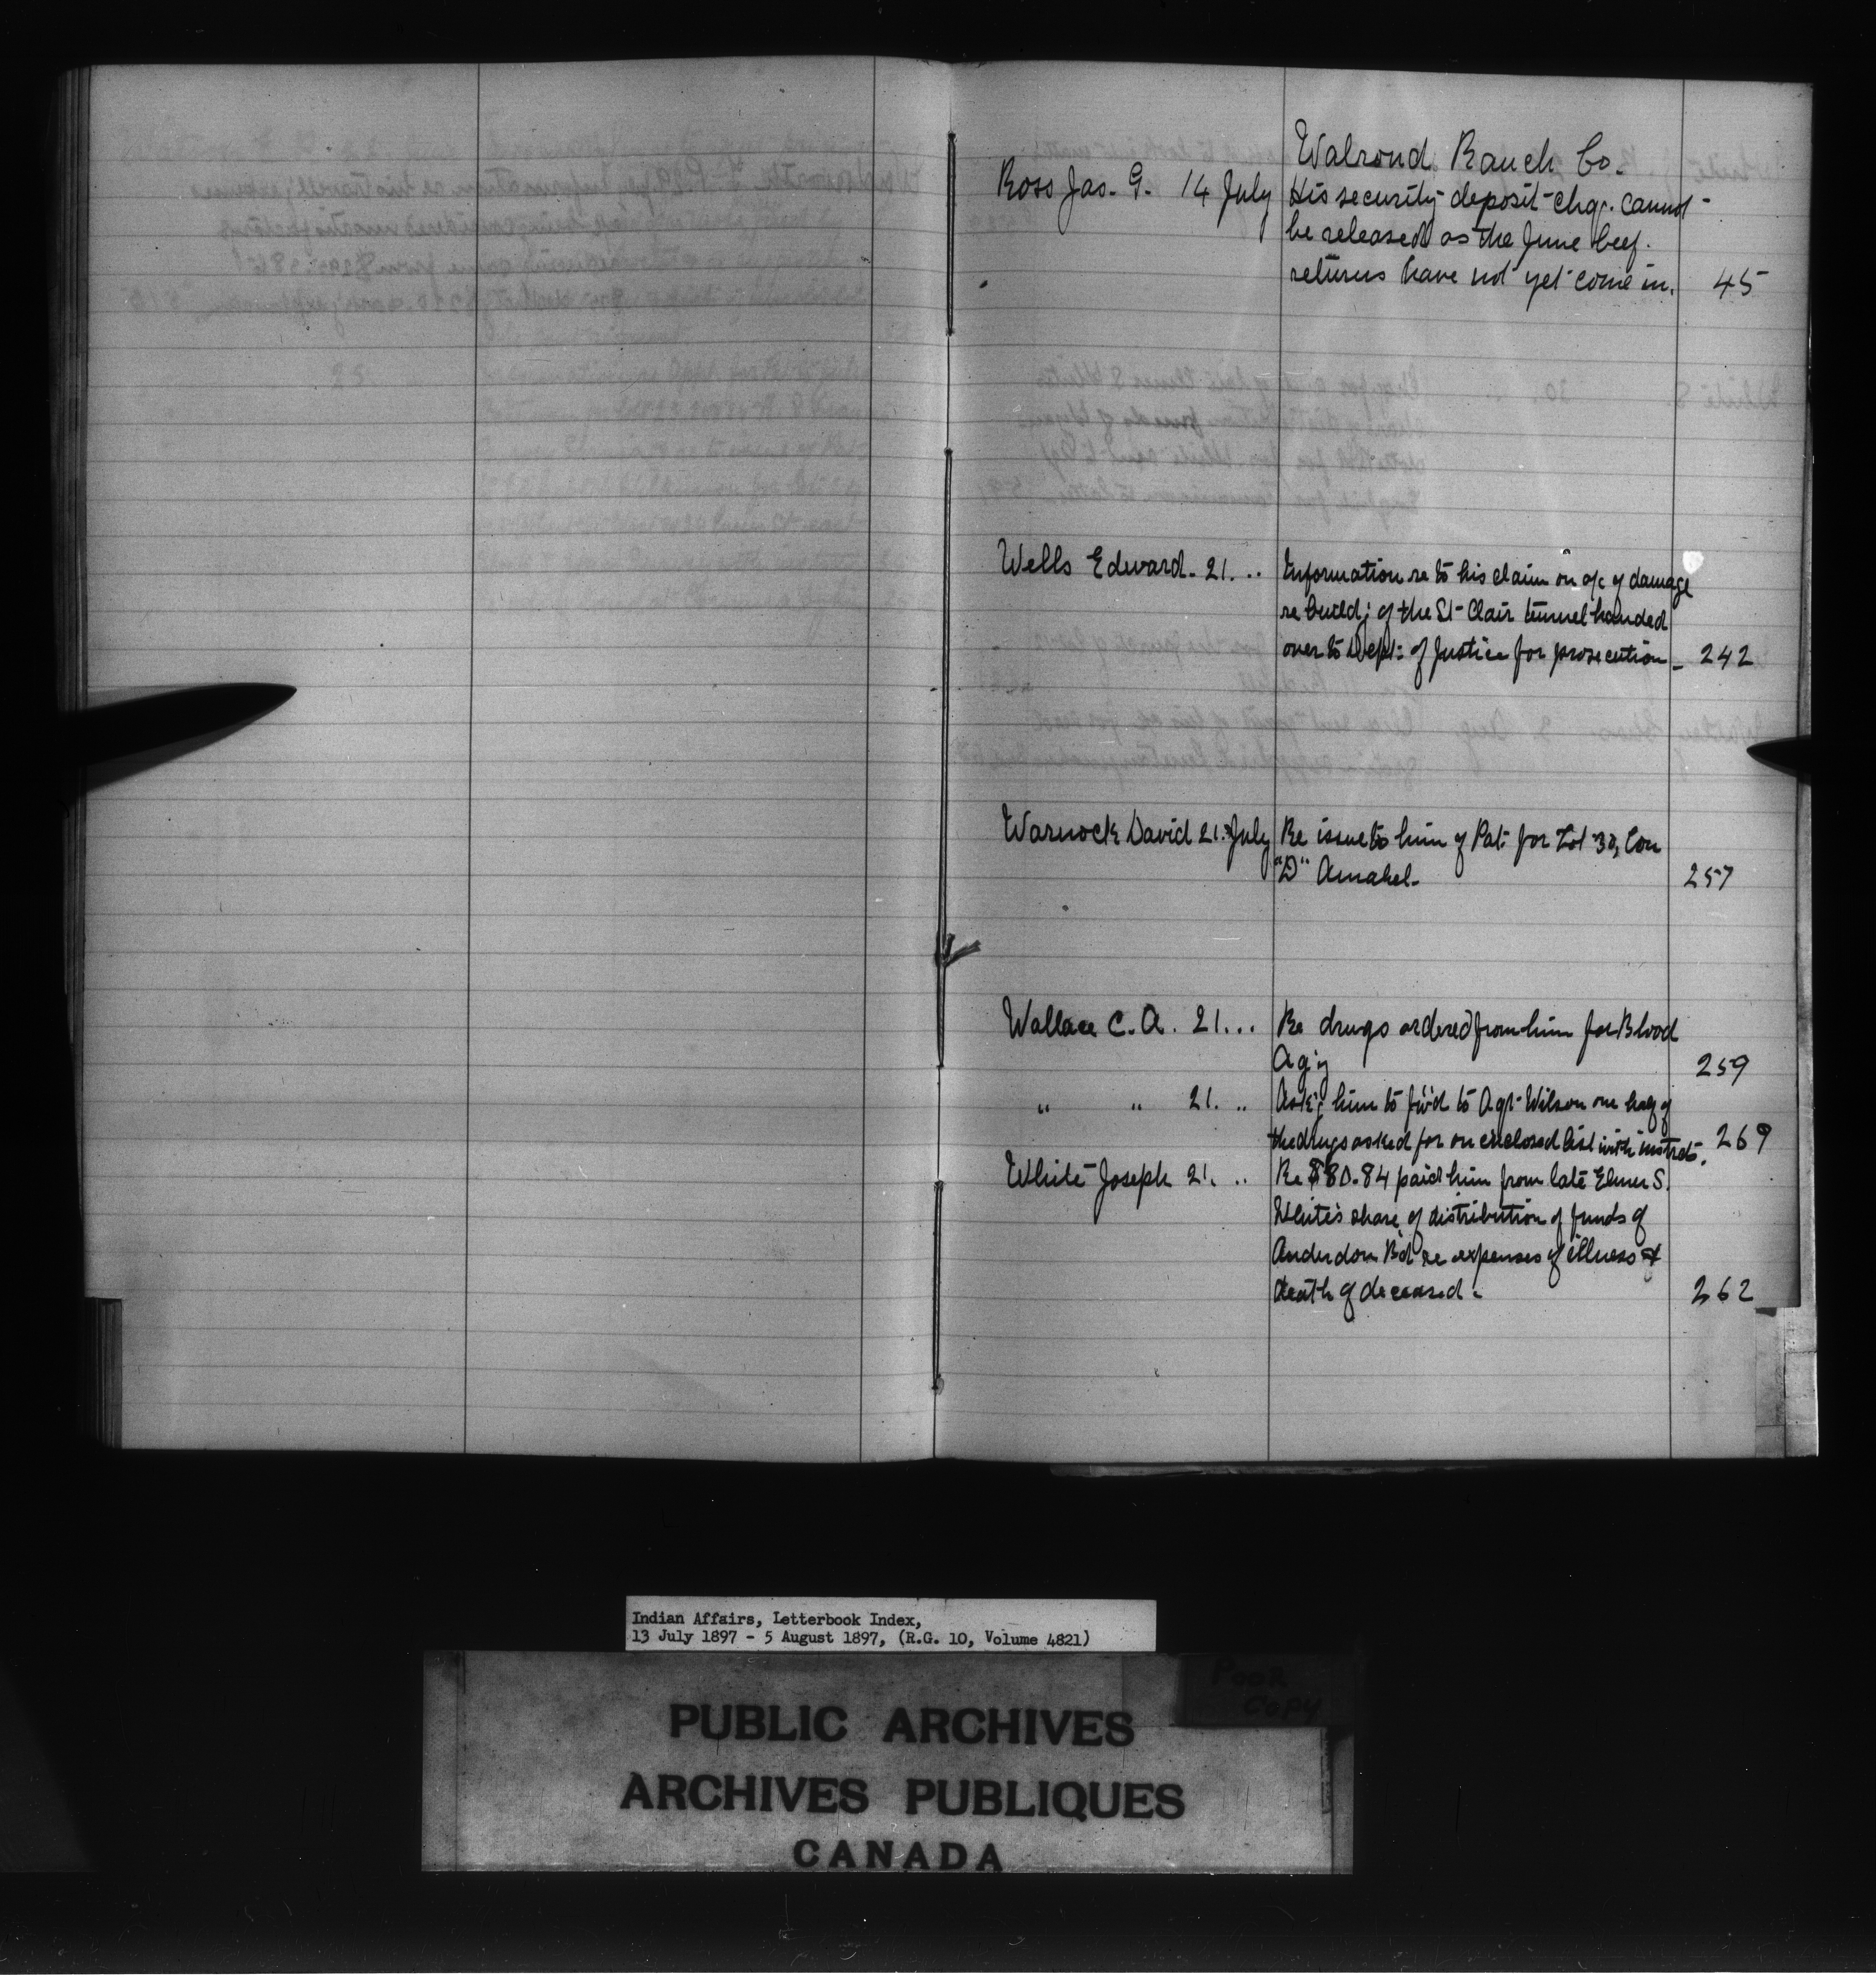 Walrond Ranch Co.
Ross Jas. G. 14 July His security deposit chq. cannot
be released as the June beef
returns have not yet come in. 45
Wells Edward. 21. .. Information re to his claim on a/c of damage
re build: of the St Clair tunnel handed
over to Dept: of Justice for prosecution 242
Warnock David 21. July Re issue to him of Pat: for Lot 30, Con
"D" Amabel. 257
Wallace C. A. 21 ... Re drugs ordered from him for Blood
Ag'y 259
" " 21. .. Ask'g him to fw'd to Agt Wilson one half of
the drugs asked for on enclosed list with instrcts. 269
White Joseph 21. .. Re $80.84 paid him from late Elmer S.
White's share of distribution of funds of
Anderdon B'd re expenses of illness &
death of deceased. 262
Indian Affairs, Letterbook Index,
13 July 1897 - 5 August 1897, (R.G. 10, Volume 4821)
POOR
COPY
PUBLIC ARCHIVES
ARCHIVES PUBLIQUES
CANADA